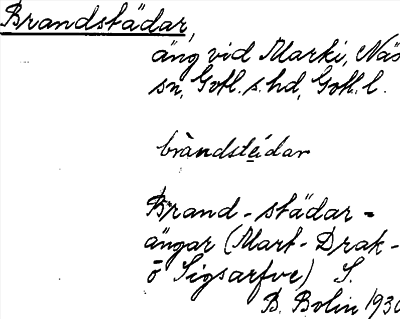 Brandstädar,
äng vid Marki, Näs
sn, Gotl. s. hd, Gotl. l.
bràndstéidar
Brand-städar=
ängar (Mart-Drak-
ö Sigsarfve) S.
B. Bolin 1930